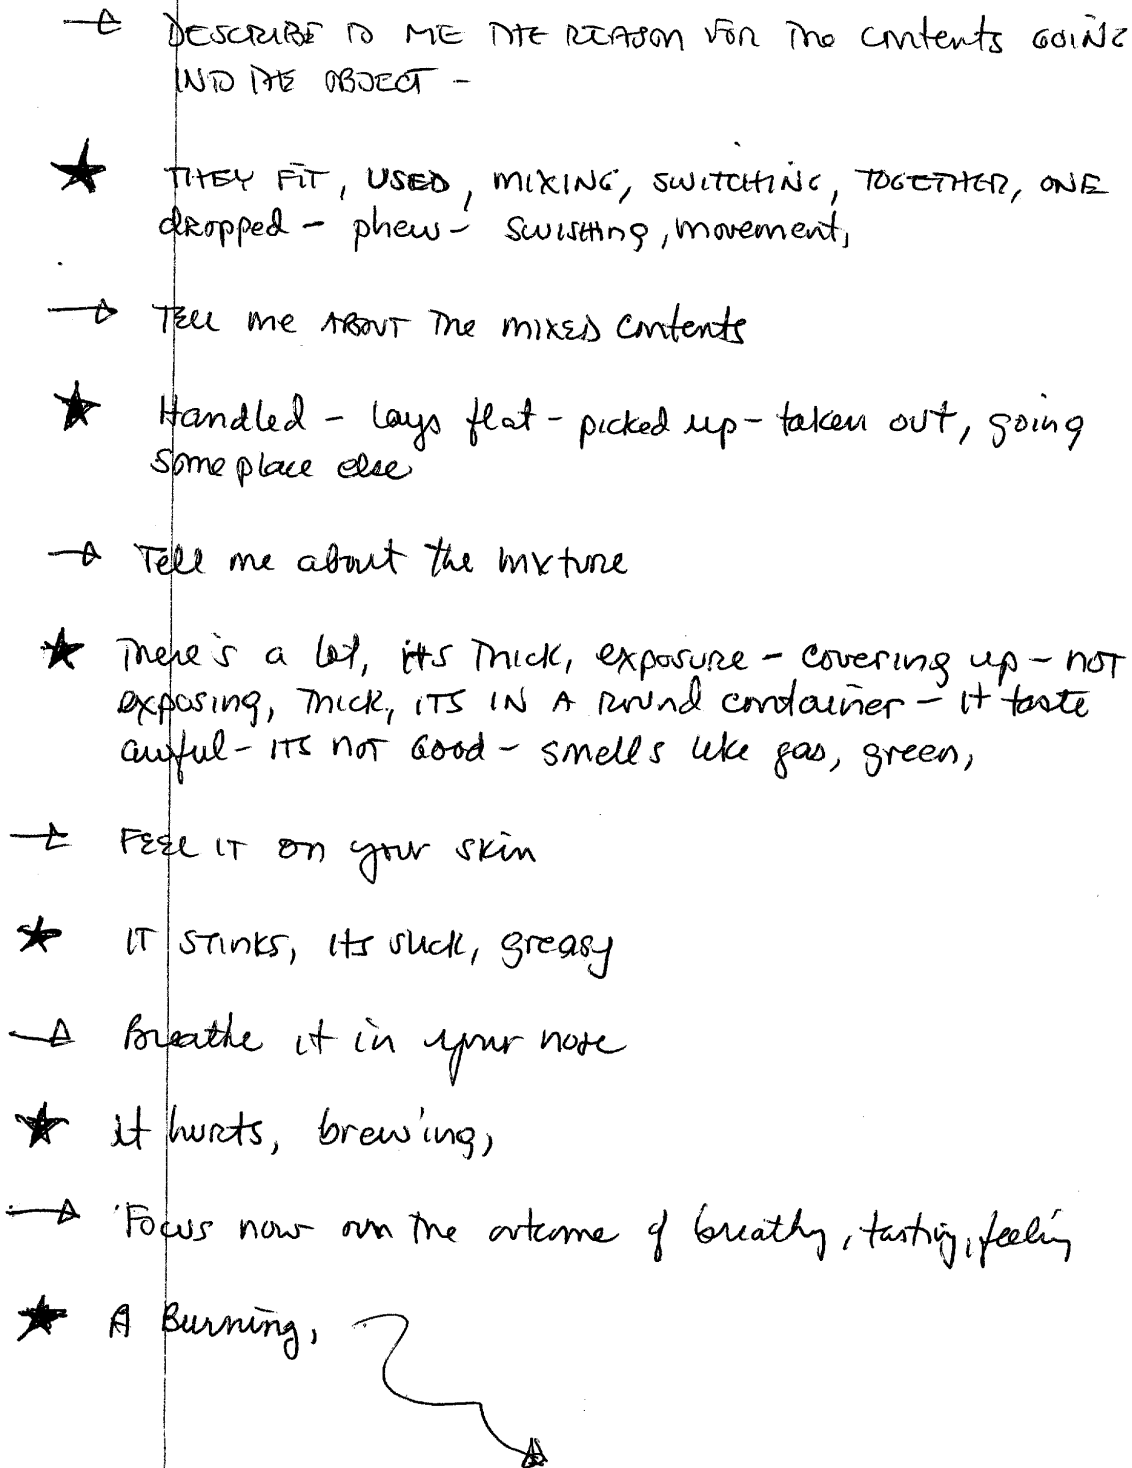 DESCRIBE TO ME THE REASON FOR THE contents GOING
INTO THE OBJECT -
THEY FIT, USED, MIXING, SWITCHING, TOGETHER, ONE
dropped - phew - swishing, movement,
TELL me ABOUT The MIXED contents
Handled - lays flat - picked up - taken out, going
someplace else
Tell me about the mixture
There's a lot, its Thick, exposure - covering up - not
exposing, Thick, ITS IN A Round container - it taste
awful - ITS not Good - smells like gas, green,
FEEL IT on your skin
IT STINKS, its slick, greasy
Breathe it in your nose
it hurts, brewing,
Focus now on the outcome of breathing, tasting, feeling
A Burning,